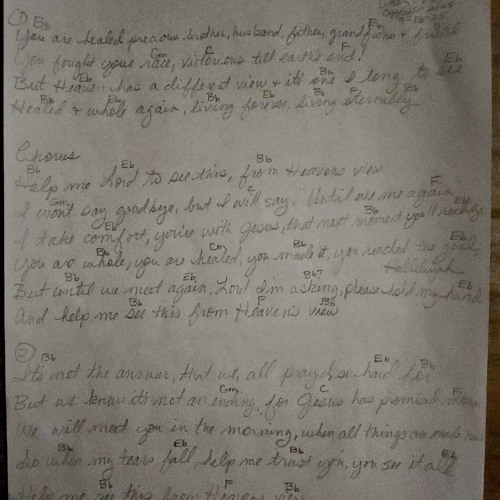 ① Bb Eb F
You are healed precious brother, husband, father, grandfather & friend
Gm F F
You fought your race, victorious till earth's end!
Eb Bb Eb
But Heaven has a different view & it's one I long to see
Bb Eb Bb Eb Bb F Bb
Healed & whole again, living forever, living eternally
Chorus
Bb Eb Bb
Help me Lord to see this, from Heavens view
Gm C F
I won't say goodbye, but I will say, "Until we meet again"
Eb Bb Eb
I take comfort, you're with Jesus, that next moment you'll
Bb Cm Bb Eb
You are whole, you are healed, you made it, you reached the goal,
Hallelujah
Bb Eb Bb7 Eb
But until we meet again, Lord I'm asking, please hold my hand
Bb F Bb
And help me see this from Heaven's view
② Bb Eb Bb
It's not the answer, that we, all prayed so hard for
Gm C F
But we know it's not an ending, for Jesus has promised more
We will meet you in the morning, when all things are made new
Bb Eb Eb
So when my tears fall, help me trust you, you see it all
Bb F Bb
Help me see this from Heavens view